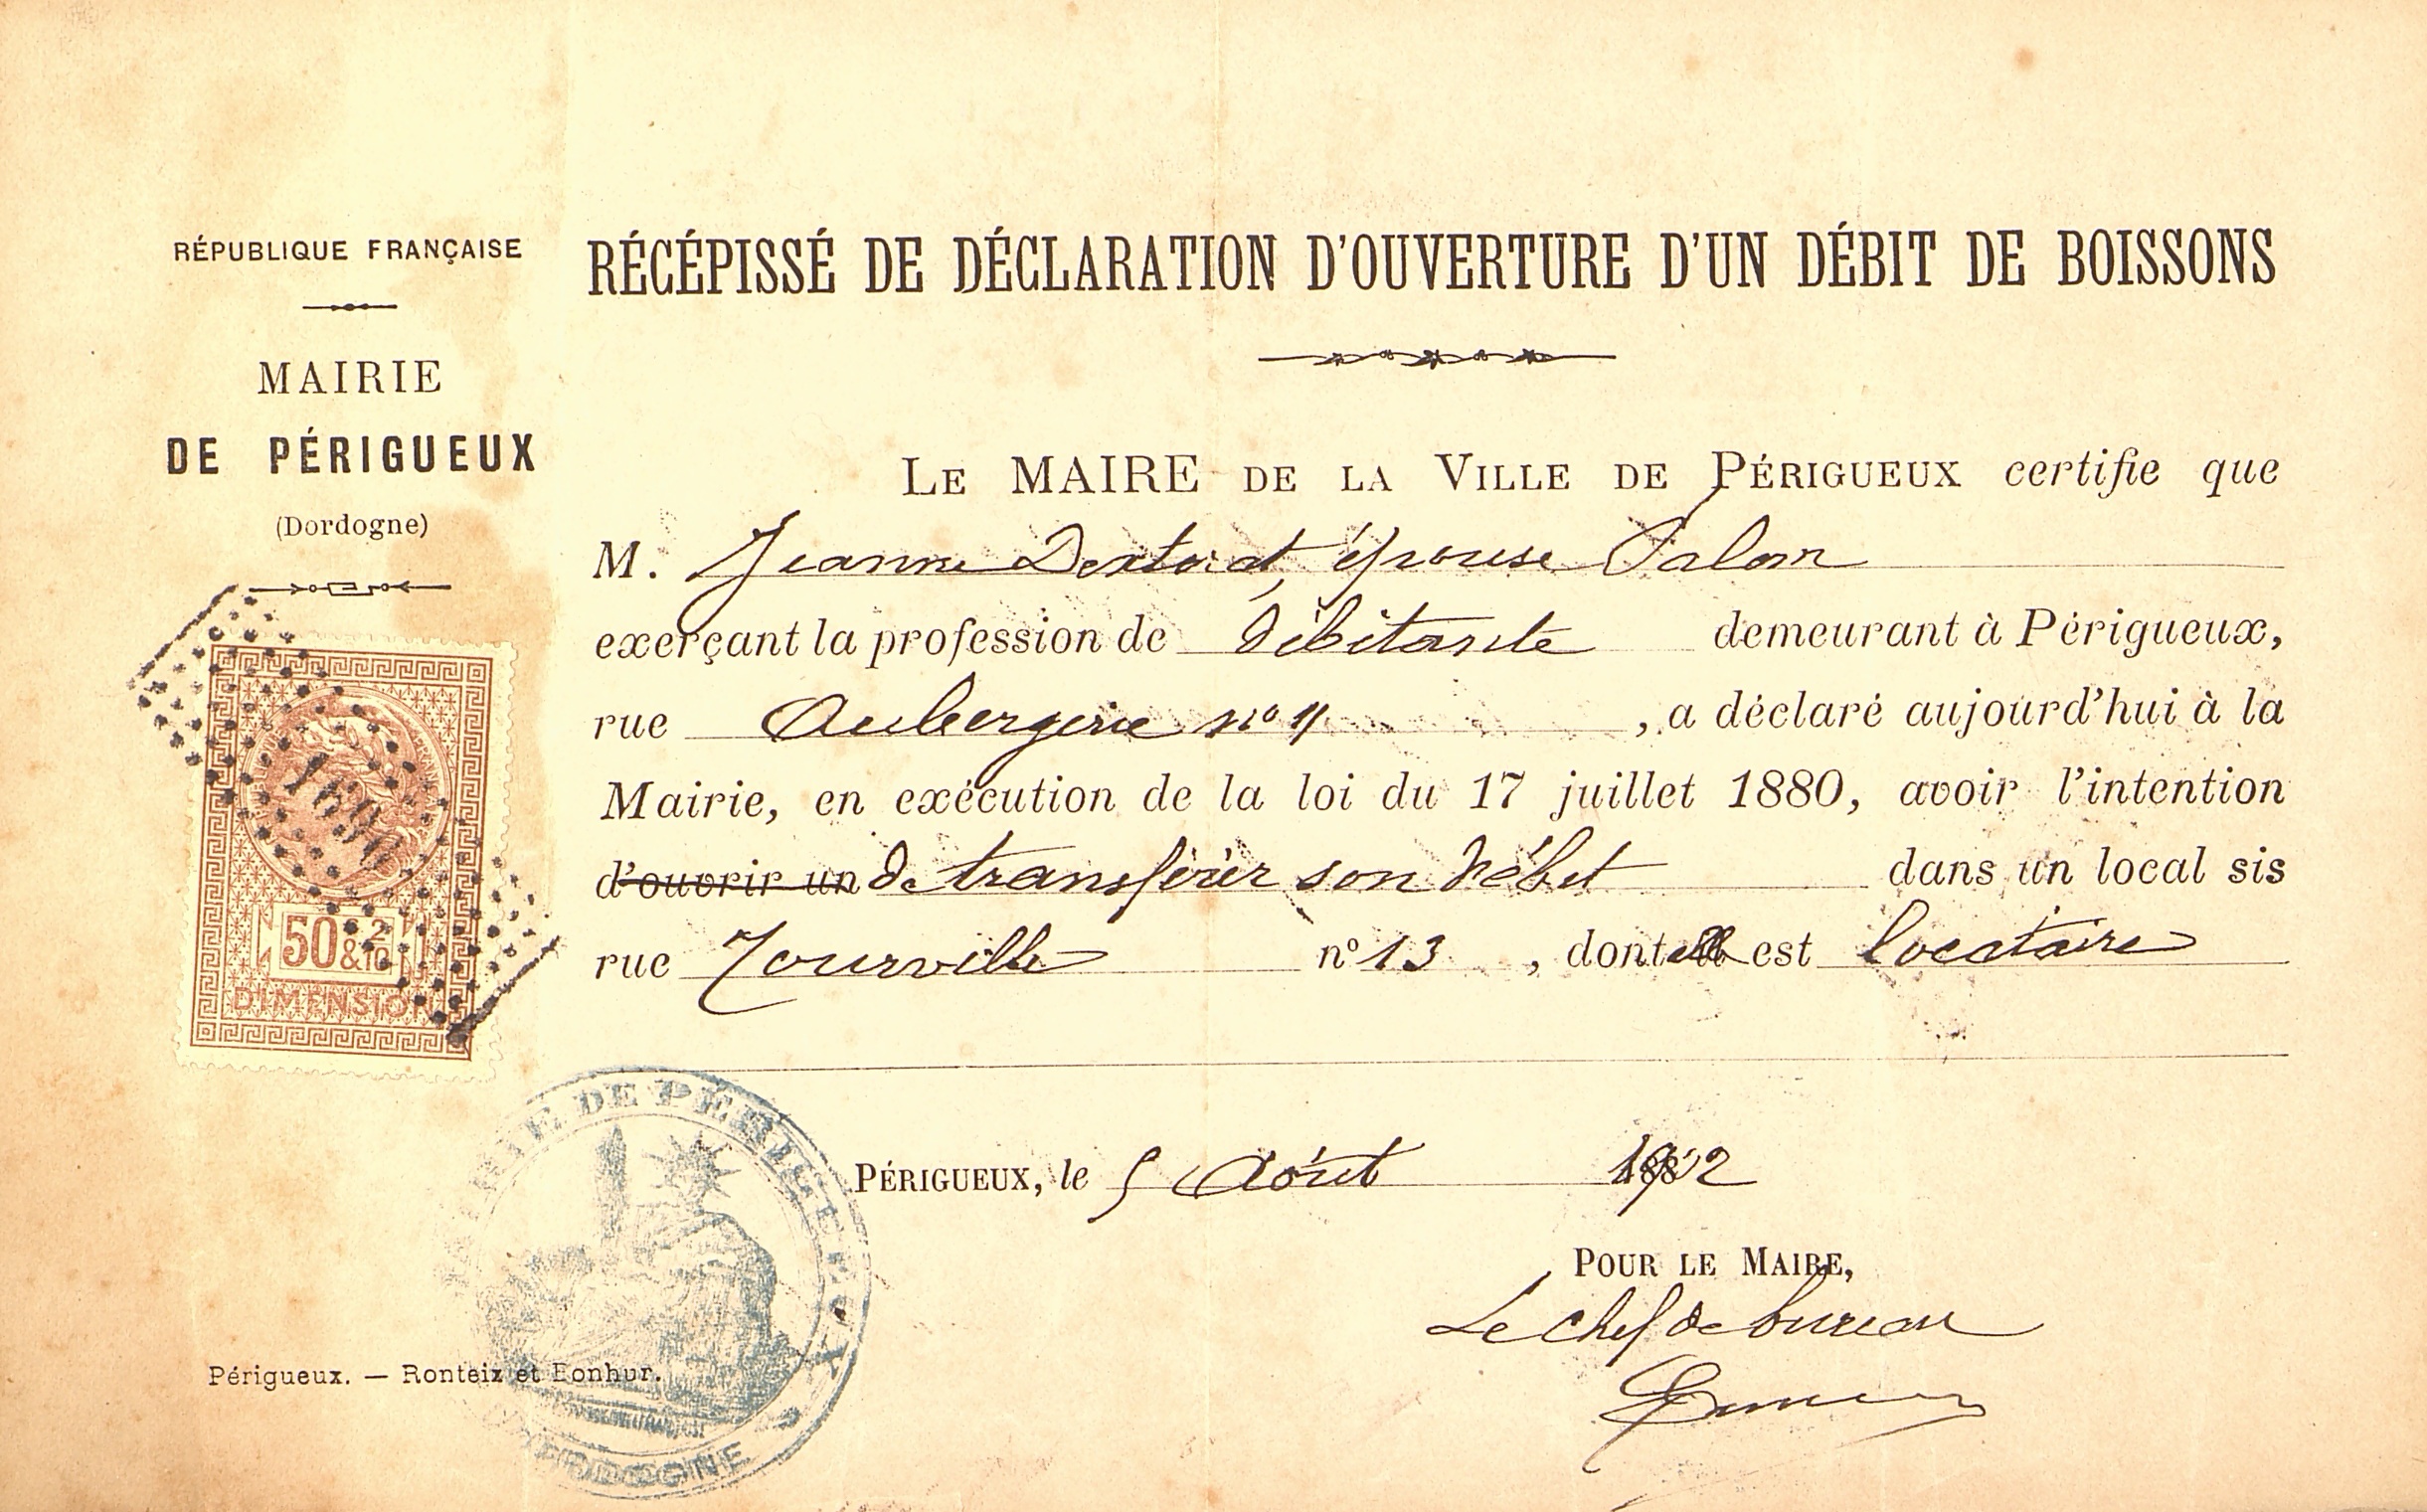 RÉPUBLIQUE FRANÇAISE
MAIRIE
DE PÉRIGUEUX
(Dordogne)
1690
50 & 2/10
DIMENSION
RÉCÉPISSÉ DE DÉCLARATION D'OUVERTURE D'UN DÉBIT DE BOISSONS
LE MAIRE DE LA VILLE DE PÉRIGUEUX certifie que
M. Jeanne épouse
exerçant la profession de Débitante demeurant à Périgueux,
rue Aubergerie no 11, a déclaré aujourd'hui à la
Mairie, en exécution de la loi du 17 juillet 1880, avoir l'intention
d'ouvrir un de transférer son débit dans un local sis
rue Tourville no 13, dont elle est locataire
PÉRIGUEUX, le 5 Août 1902
POUR LE MAIRE,
Le chef de bureau
MAIRIE DE PÉRIGUEUX
DORDOGNE
Périgueux. — Ronteix et Bonhur.